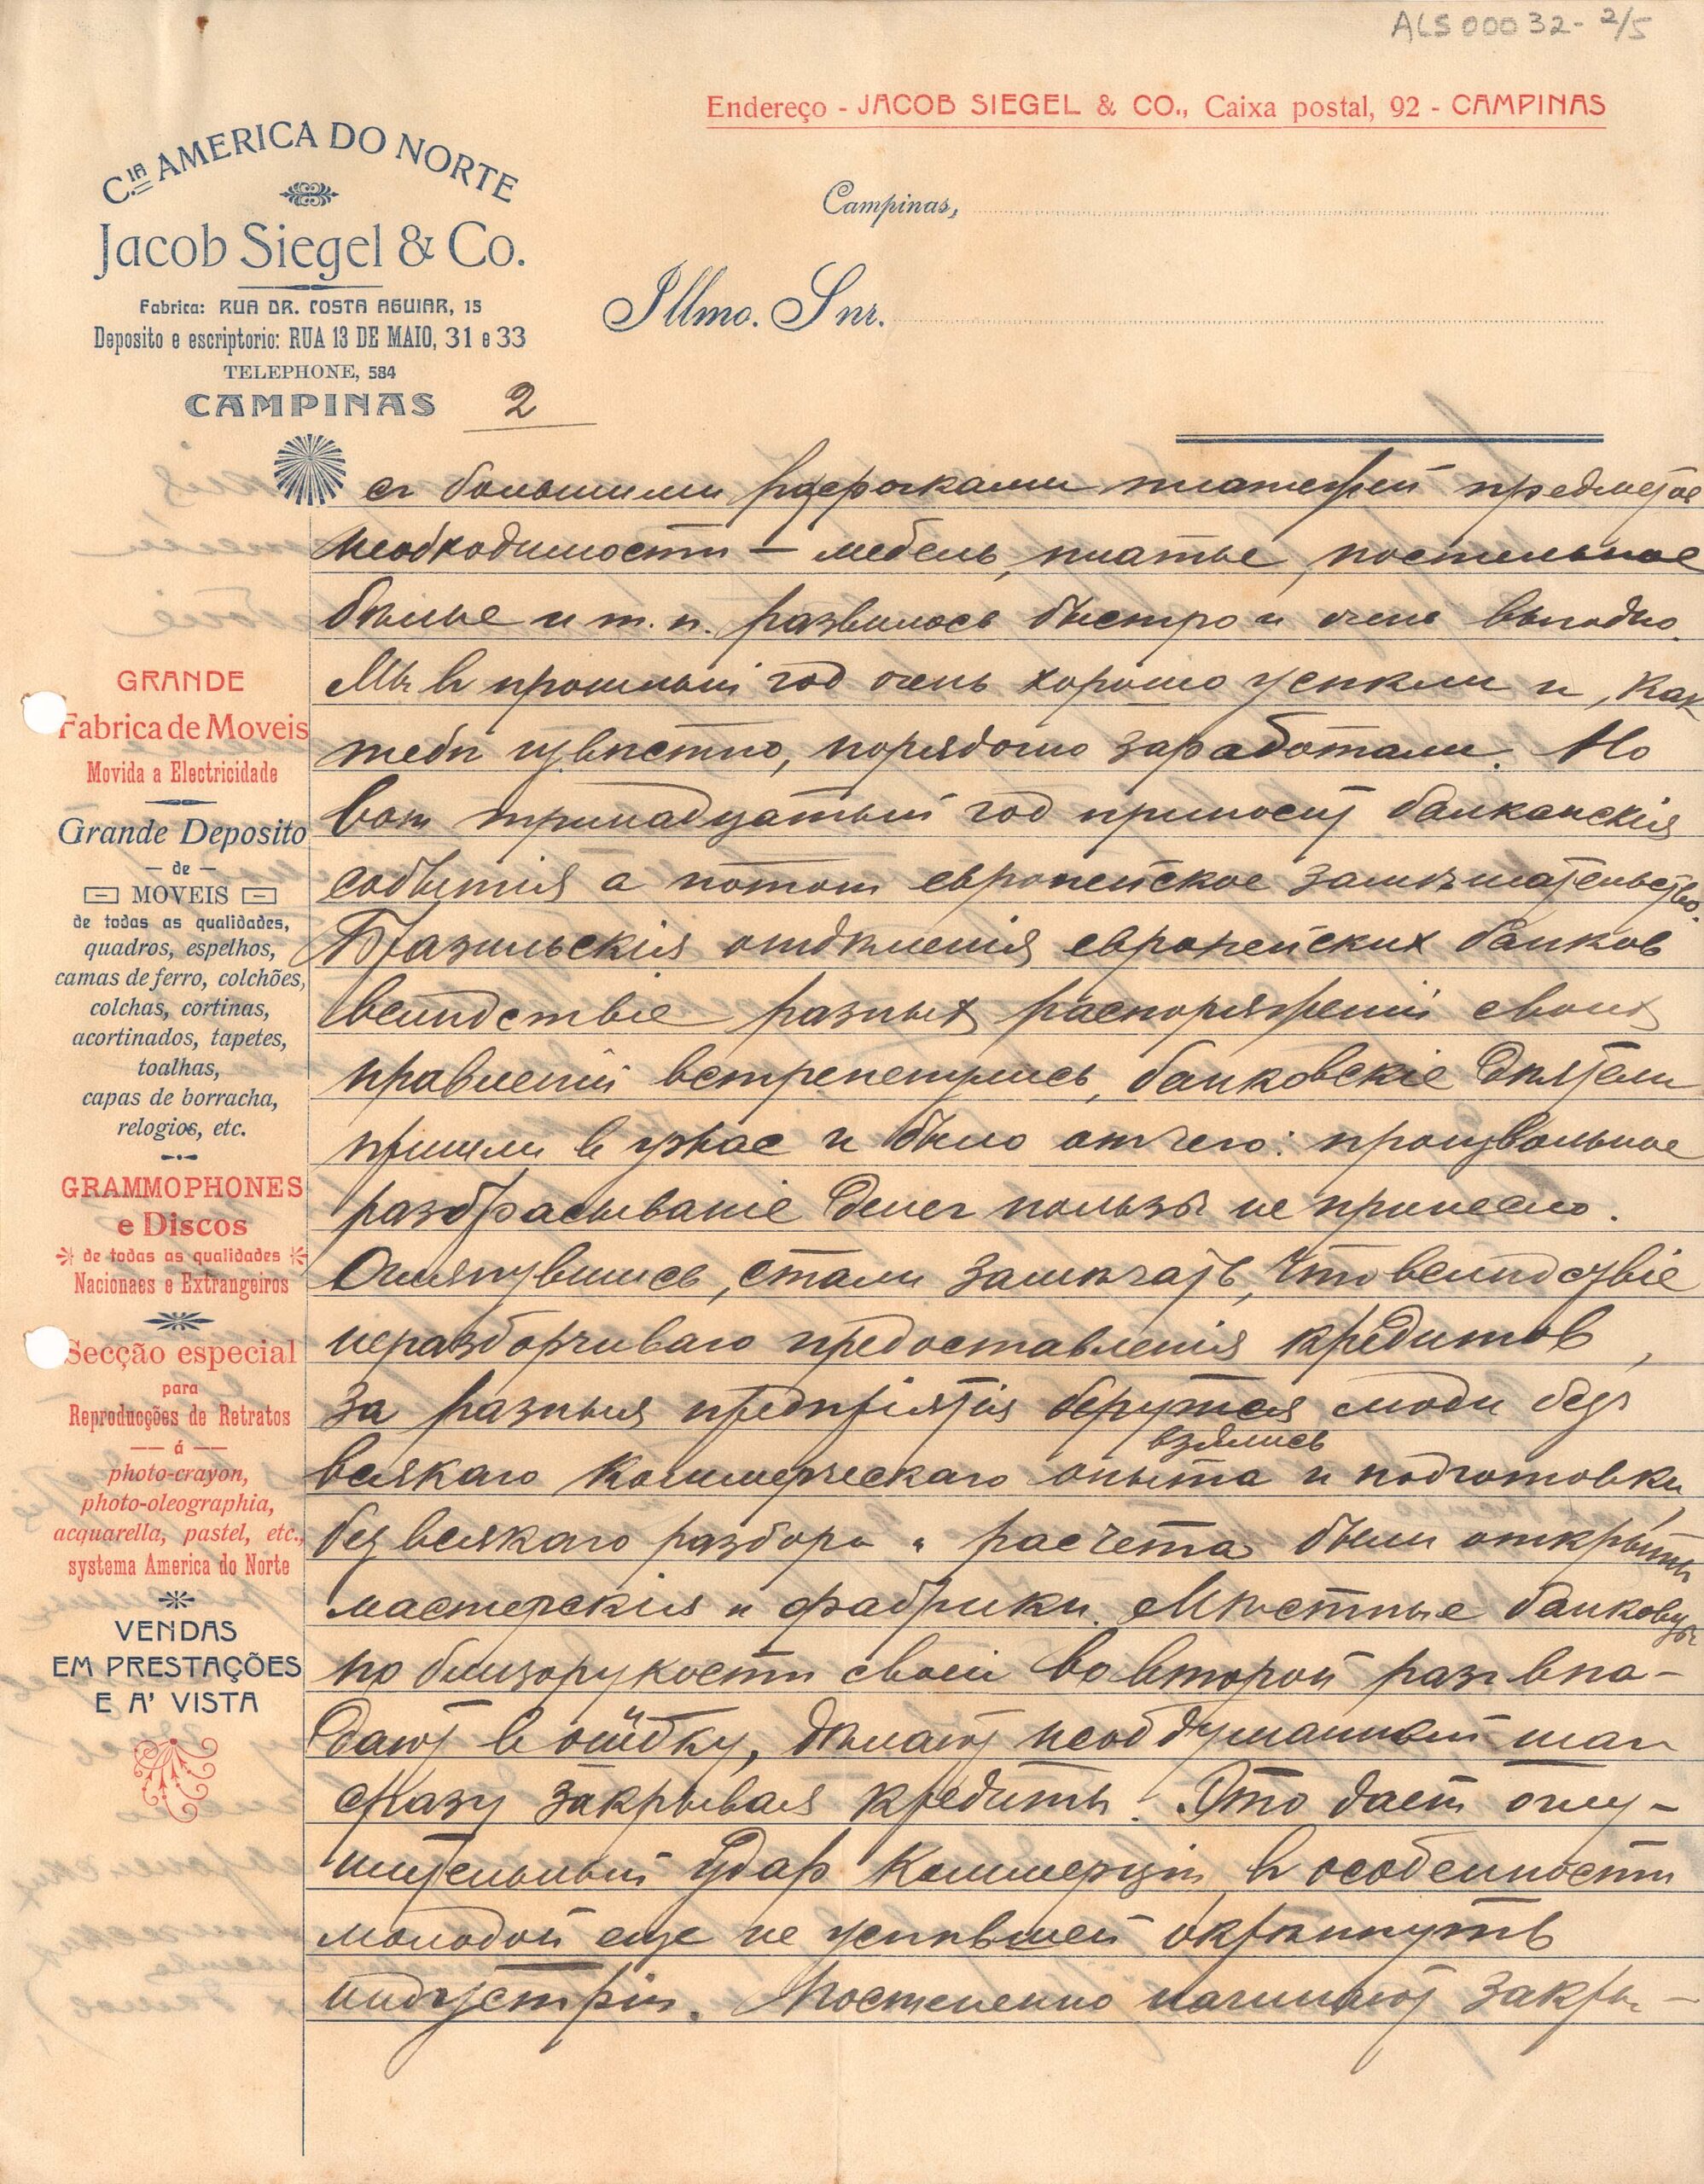 ALS00032-2/5
Endereço - JACOB SIEGEL & CO., Caixa postal, 92 - CAMPINAS
C.IA AMERICA DO NORTE
Jacob Siegel & Co.
Fabrica: RUA DR. COSTA AGUIAR, 15
Deposito e escriptorio: RUA 13 DE MAIO, 31 e 33
TELEPHONE, 584
CAMPINAS
Campinas,
Illmo. Snr.
2
с большими разсрочками платежей предметов
необходимости – мебель, платье, постельное
бѣлье и т. п. развилось быстро и очень выгодно.
Мы в прошлый год очень хорошо успѣли и, как
тебѣ извѣстно, порядочно заработали. Но
вот тринадцатый год приносит балканскія
событія а потом европейское замѣшательство.
Бразильскія отдѣленія европейских банков
вслѣдствіе разных распоряженій своих
правленій встрепенулись, банковскіе дѣятели
пришли в ужас и было отчего: произвольное
разбрасываніе денег пользы не принесло.
Оглянувшись, стали замѣчать, что вслѣдствіе
неразборчиваго предоставленія кредитов,
за разныя предпріятія берутся люди без
взялись
всякаго коммерческаго опыта и подготовки,
без всякаго разбора и расчета были открыты
мастерскія и фабрики. Мѣстные банковцы
по близорукости своей во второй раз впа-
дают в ошибку, дѣлают необдуманный шаг
сразу закрывая кредиты. Это дает ощу-
тительный удар коммерціи, в особенности
молодой еще не успѣвшей окрѣпнуть
индустріи. Постепенно начинают закры-
GRANDE
Fabrica de Moveis
Movida a Electricidade
Grande Deposito
— de —
MOVEIS
de todas as qualidades,
quadros, espelhos,
camas de ferro, colchões,
colchas, cortinas,
acortinados, tapetes,
toalhas,
capas de borracha,
relogios, etc.
GRAMMOPHONES
e Discos
de todas as qualidades
Nacionaes e Extrangeiros
Secção especial
para
Reproducções de Retratos
— á —
photo-crayon,
photo-oleographia,
acquarella, pastel, etc.,
systema America do Norte
VENDAS
EM PRESTAÇÕES
E A' VISTA